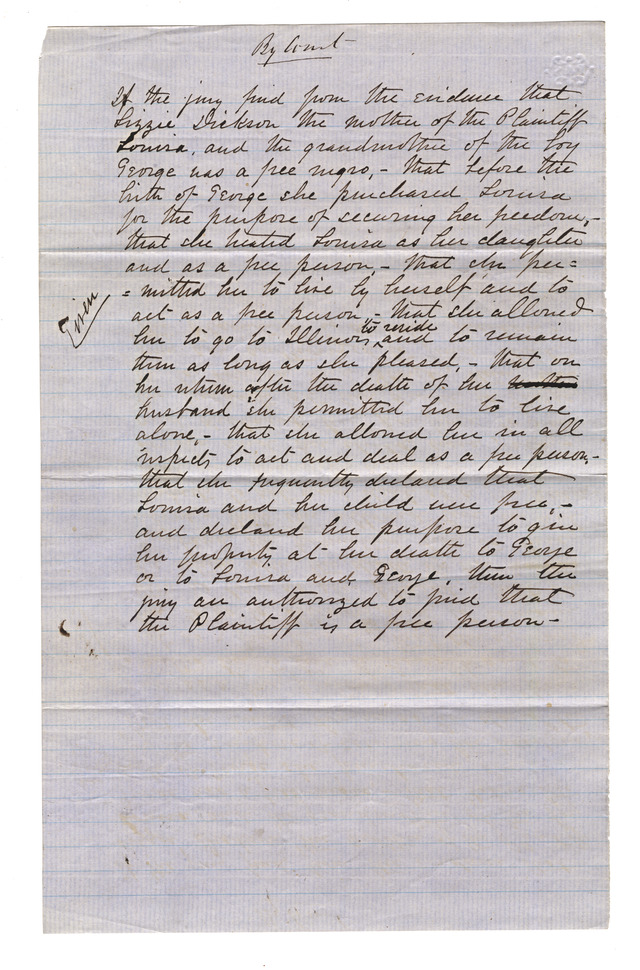 By Court
If the jury find from the evidence that
Lizzie Dickson the mother of the Plaintiff
Louisa, and the grandmother of the boy
George was a free negro, - that before the
birth of George she purchased Louisa
for the purpose of securing her freedom, -
that she treated Louisa as her daughter
and as a free person, - that she per=
=mitted her to live by herself and to
act as a free person, - that she allowed
her to go to Illinois, to reside and to remain
there as long as she pleased, - that on
her return after the death of her
husband she permitted her to live
alone, - that she allowed her in all
respects to act and deal as a free person, -
that she frequently declared that
Louisa and her child were free, -
and declared her purpose to give
her property at her death to George
or to Louisa and George, then the
jury are authorized to find that
the Plaintiff is a free person -
Given